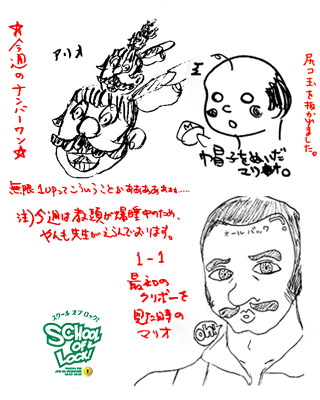 ☆今週のナンバーワン☆
アリオ
王
尻コ玉を抜かれました。
帽子をぬいだ
マリオ。
無限1UPってこういうことかあああああぁぁ……
注)今週は教頭が爆睡中のため、
やんも先生がえらんでおります。
オールバック
1-1
最初の
クリボーを
見た時の
マリオ
Oh!
スクール オブ ロック!
SCHOOL
OF
LOCK!